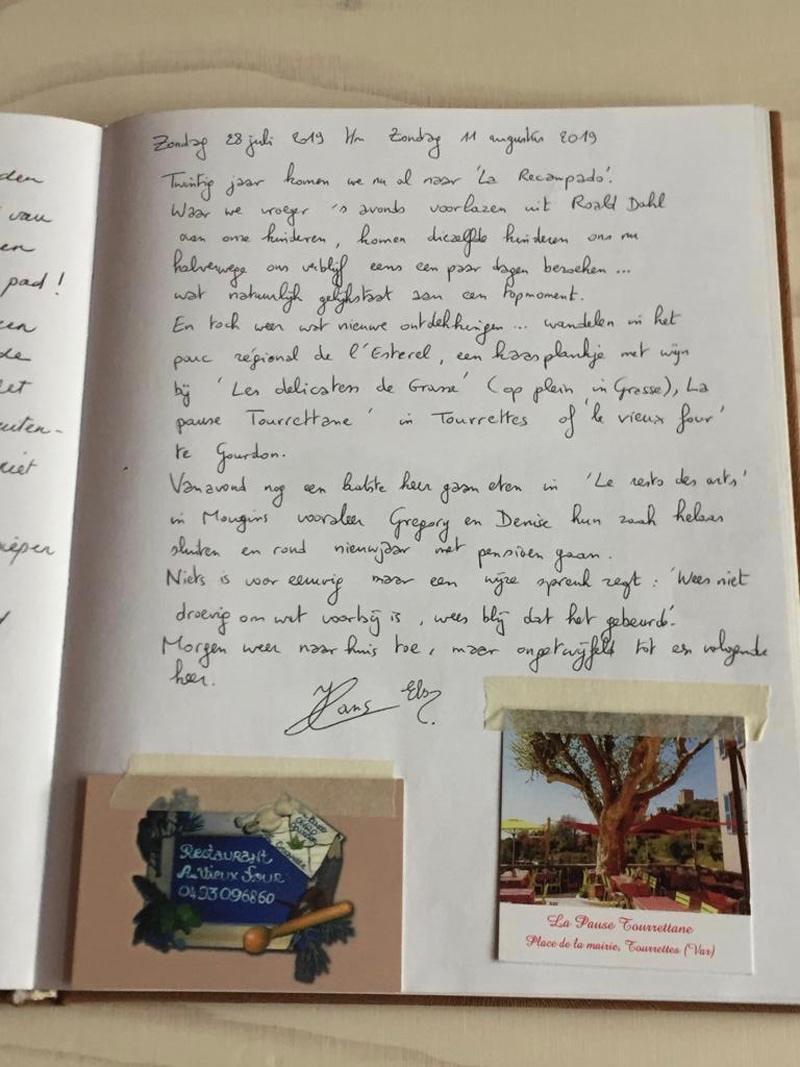 den
van
en
pad !
en
de
et
uten-
iet
iepen
Zondag 28 juli 2019 t/m Zondag 11 augustus 2019
Twintig jaar komen we nu al naar 'La Recampado'.
Waar we vroeger 's avonds voorlazen uit Roald Dahl
aan onze kinderen, komen diezelfde kinderen ons nu
halverwege ons verblijf eens een paar dagen bezoeken ...
wat natuurlijk gelijkstaat aan een topmoment.
En toch weer wat nieuwe ontdekkingen ... wandelen in het
parc régional de l'Esterel, een kaasplankje met wijn
bij 'Les délicatess de Grasse' (op plein in Grasse), La
pause Tourrettane' in Tourrettes of 'le vieux four'
te Gourdon.
Vanavond nog een laatste keer gaan eten in 'Le resto des arts'
in Mougins vooraleer Gregory en Denise hun zaak helaas
sluiten en rond nieuwjaar met pensioen gaan.
Niets is voor eeuwig maar een wijze spreuk zegt : 'Wees niet
droevig om wat voorbij is, wees blij dat het gebeurde'.
Morgen weer naar huis toe, maar ongetwijfeld tot een volgende
keer.
Hans Els
Restaurant
Au Vieux Four
0493096860
La Pause Tourrettane
Place de la mairie, Tourrettes (Var)